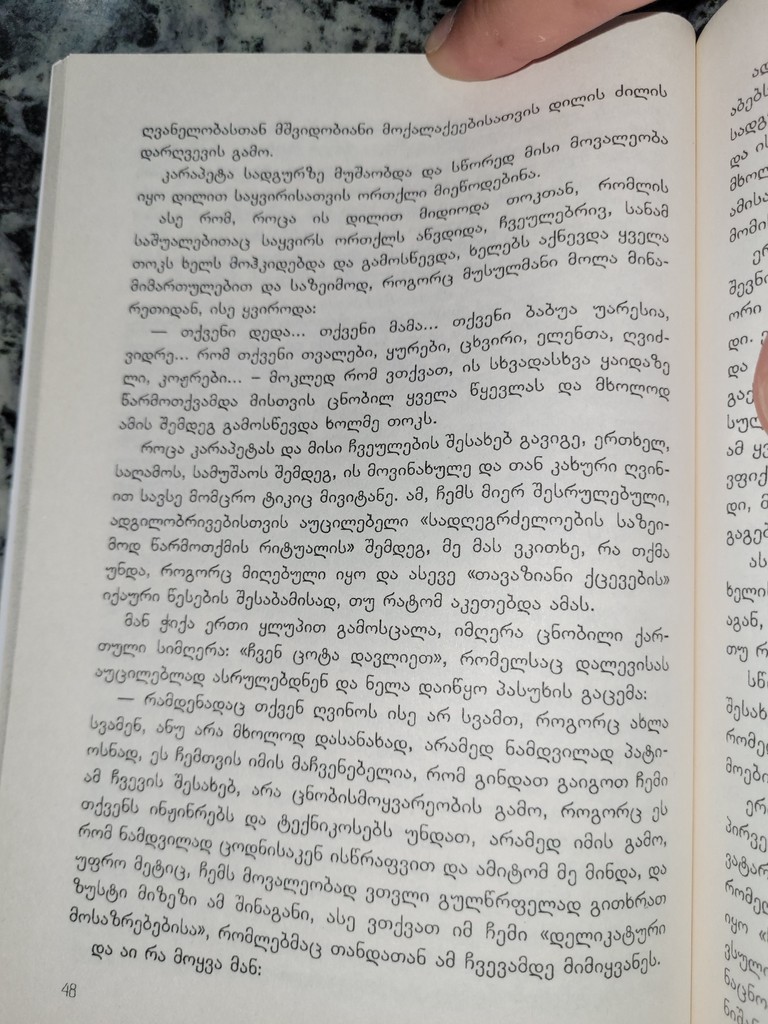 ღვანელობასთან მშვიდობიანი მოქალაქეებისათვის დილის ძილის
დარღვევის გამო.
კარაპეტა სადგურზე მუშაობდა და სწორედ მისი მოვალეობა
იყო დილით საყვირისათვის ორთქლი მიეწოდებინა.
ასე რომ, როცა ის დილით მიდიოდა თოკთან, რომლის
საშუალებითაც საყვირს ორთქლს აწვდიდა, ჩვეულებრივ, სანამ
თოკს ხელს მოჰკიდებდა და გამოსწევდა, ხელებს აქნევდა ყველა
მიმართულებით და საზეიმოდ, როგორც მუსულმანი მოლა მინა-
რეთიდან, ისე ყვიროდა:
— თქვენი დედა... თქვენი მამა... თქვენი ბაბუა უარესია,
ვიდრე... რომ თქვენი თვალები, ყურები, ცხვირი, ელენთა, ღვიძ-
ლი, კოჟრები... – მოკლედ რომ ვთქვათ, ის სხვადასხვა ყაიდაზე
წარმოთქვამდა მისთვის ცნობილ ყველა წყევლას და მხოლოდ
ამის შემდეგ გამოსწევდა ხოლმე თოკს.
როცა კარაპეტას და მისი ჩვეულების შესახებ გავიგე, ერთხელ,
საღამოს, სამუშაოს შემდეგ, ის მოვინახულე და თან კახური ღვინ-
ით სავსე მომცრო ტიკიც მივიტანე. ამ, ჩემს მიერ შესრულებული,
ადგილობრივებისთვის აუცილებელი «სადღეგრძელოების საზეი-
მოდ წარმოთქმის რიტუალის» შემდეგ, მე მას ვკითხე, რა თქმა
უნდა, როგორც მიღებული იყო და ასევე «თავაზიანი ქცევების»
იქაური წესების შესაბამისად, თუ რატომ აკეთებდა ამას.
მან ჭიქა ერთი ყლუპით გამოსცალა, იმღერა ცნობილი ქარ-
თული სიმღერა: «ჩვენ ცოტა დავლიეთ», რომელსაც დალევისას
აუცილებლად ასრულებდნენ და ნელა დაიწყო პასუხის გაცემა:
— რამდენადაც თქვენ ღვინოს ისე არ სვამთ, როგორც ახლა
სვამენ, ანუ არა მხოლოდ დასანახად, არამედ ნამდვილად პატი-
ოსნად, ეს ჩემთვის იმის მაჩვენებელია, რომ გინდათ გაიგოთ ჩემი
ამ ჩვევის შესახებ, არა ცნობისმოყვარეობის გამო, როგორც ეს
თქვენს ინჟინრებს და ტექნიკოსებს უნდათ, არამედ იმის გამო,
რომ ნამდვილად ცოდნისაკენ ისწრაფვით და ამიტომ მე მინდა, და
უფრო მეტიც, ჩემს მოვალეობად ვთვლი გულწრფელად გითხრათ
ზუსტი მიზეზი ამ შინაგანი, ასე ვთქვათ იმ ჩემი «დელიკატური
მოსაზრებებისა», რომლებმაც თანდათან ამ ჩვევამდე მიმიყვანეს.
და აი რა მოყვა მან:
48